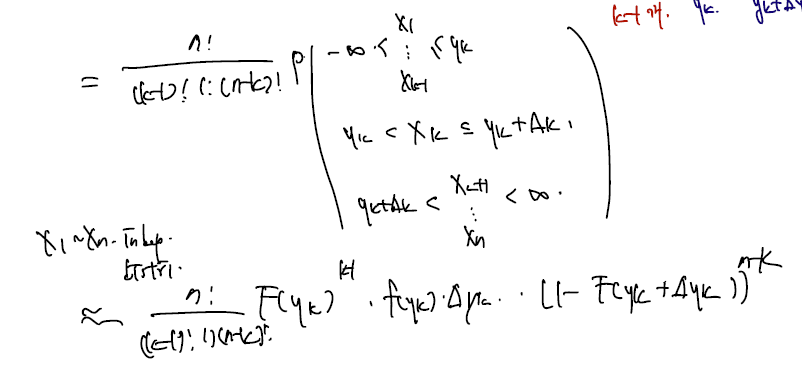 k-1개. yk. yk+Δy
= n! / (k-1)! 1! (n-k)! P( -∞ < X1 ⋮ Xk-1 ≤ yk
yk < Xk ≤ yk+Δk,
yk+Δk < Xk+1 ⋮ Xn < ∞. )
X1 ~ Xn. Indep.
≈ n! / (k-1)! 1! (n-k)! F(yk)^k-1 · f(yk)·Δyk · [1- F(yk+Δyk)]^n-k